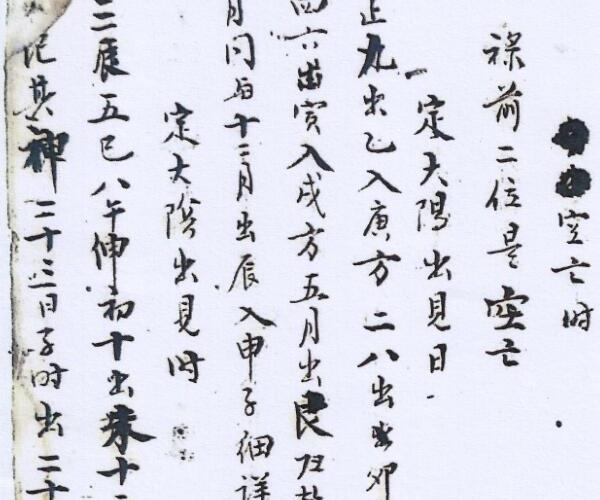 空亡时
祿前二位是空亡
一定大陽出見日
正九出乙入庚方二八出 卯
四六出寅入戌方五月出艮归
月同与十二月出辰入申子細詳
定大陰出見时
三辰五巳八午伸初十出未十二
记其神二十三日子时出二十